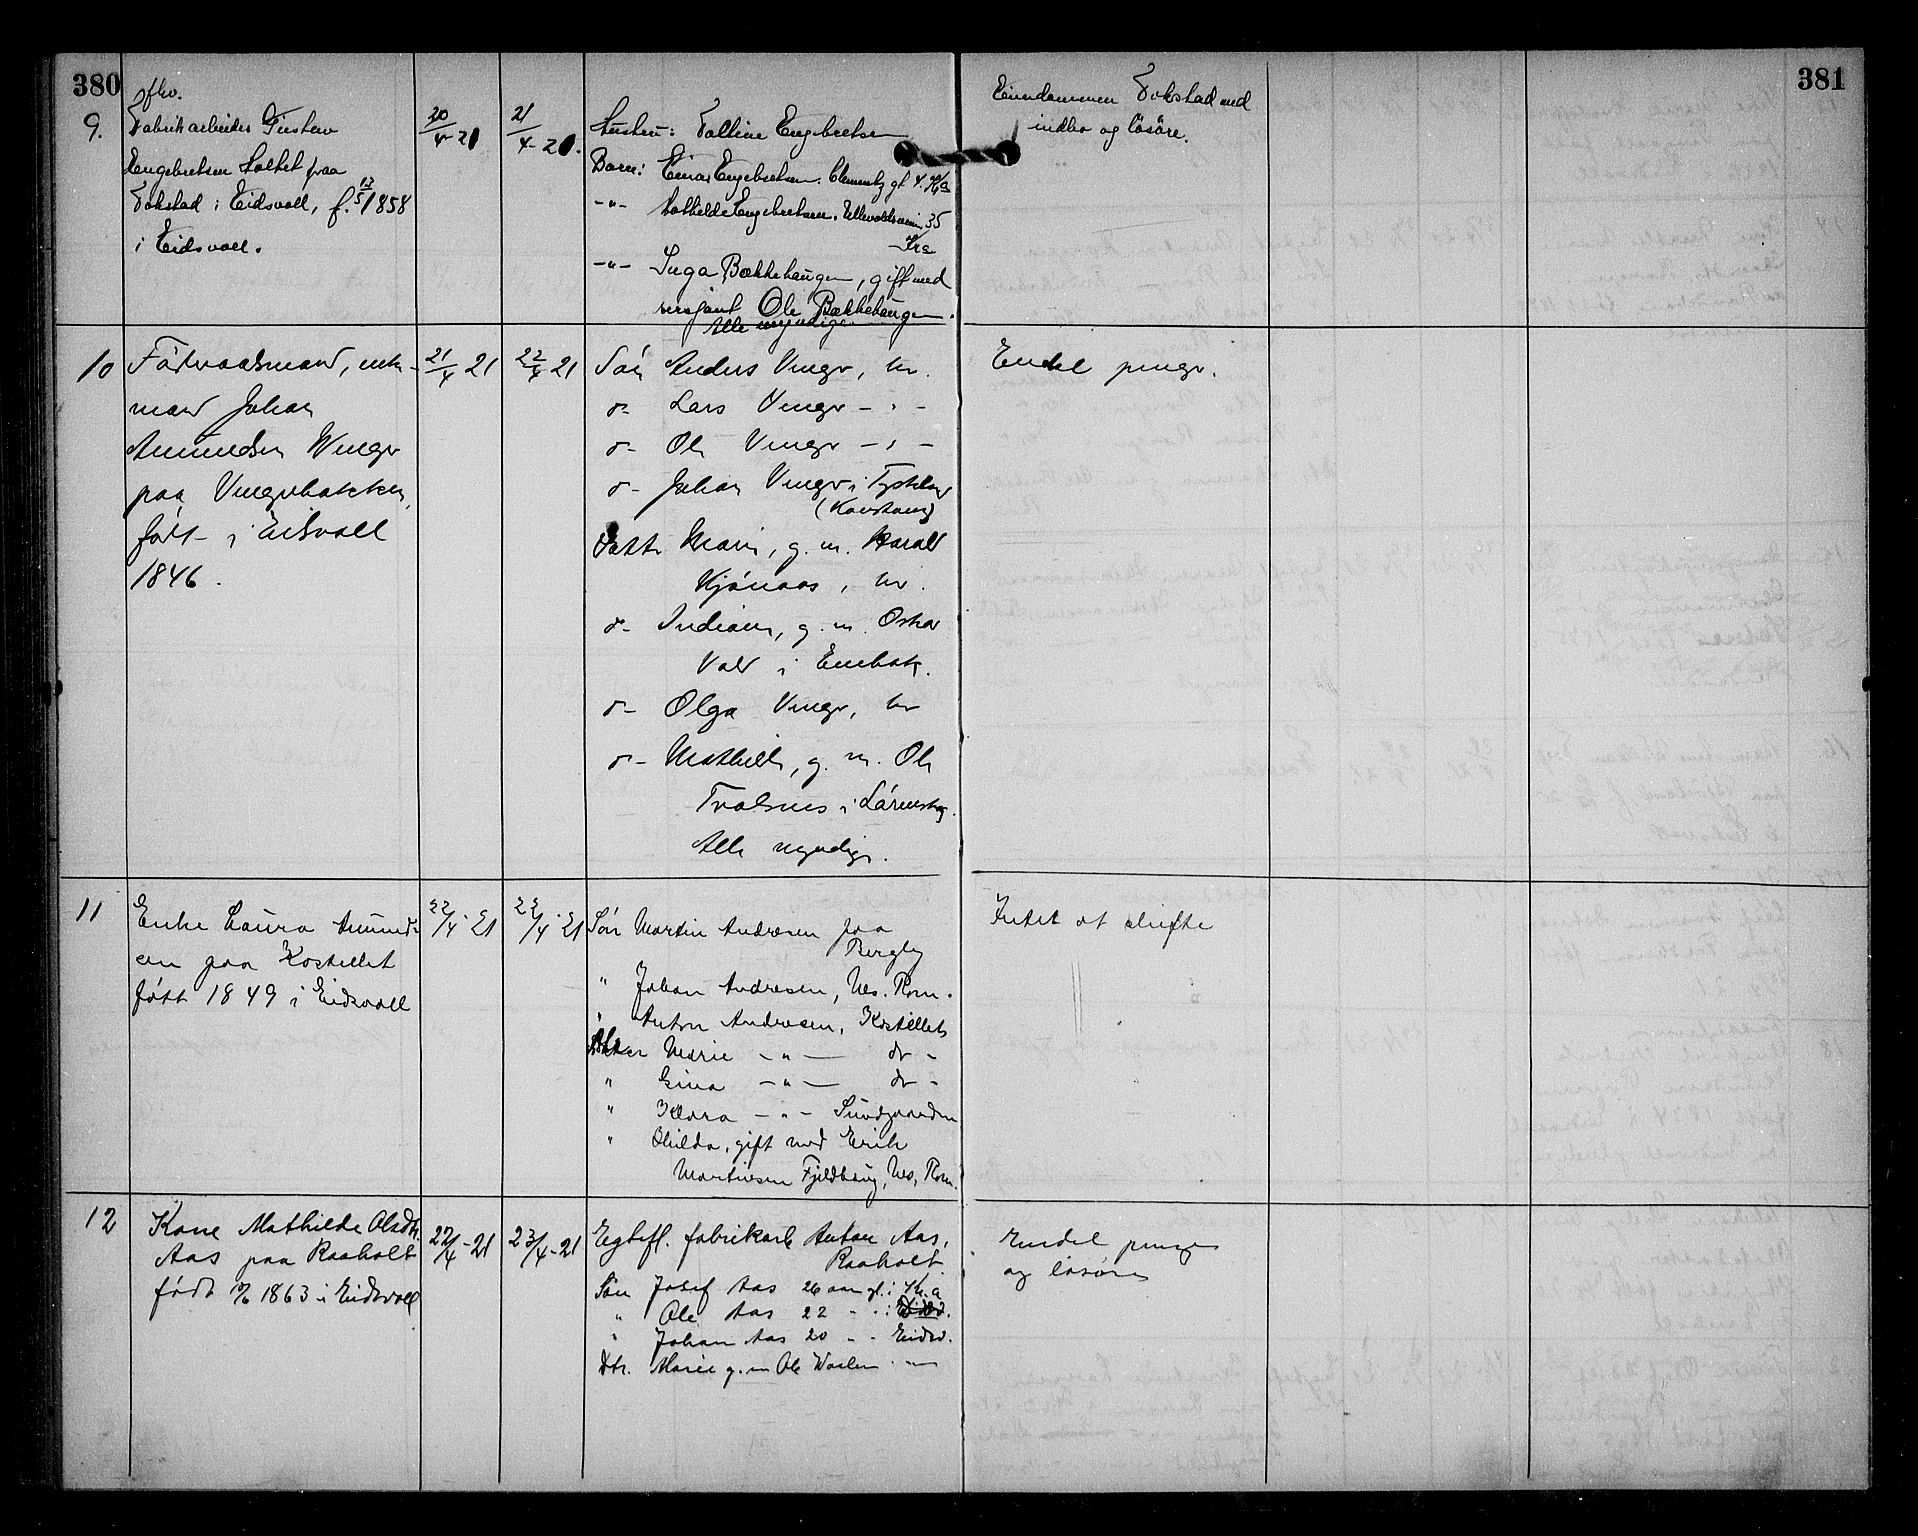 380
381
9.
fhv.
Fabrikarbeider Gustav
Engebretsen Holtet paa
Tokstad i Eidsvoll, f. 13/5 1858
i Eidsvoll.
20/4-21
21/4-21.
Hustru: Engebretsen
Barn: Einar Engebretsen. gt 4.
-"- Mathilde Engebretsen. Ullevoldsveien 35
Kra
-"- Inga Bækkehaugen, gift med
sersjant Ole Bækkehaugen.
Alle myndige
Eiendommen Tokstad med
indbo og løsøre.
10
Föderaadsmand, enke-
mand Johan
Amundsen Vinger
paa Vingerbakken,
födt i Eidsvoll
1846.
21/4 21
22/4 21
Sön Anders Vinger, her.
d- Lars Vinger - " -
d- Ole Vinger - " -
d- Johan Vinger i Tyskland
Datter Marie, g. m. Harald
Kjönaas, her.
d- Indiane, g. m. Oskar
Vold i Enebak.
d- Olga Vinger, her
d- Mathilde, g. m. Ole
i Lörenskog.
Alle myndige.
Endel penger.
11
Enke Laura Amund-
sen paa Kostellet
født 1849 i Eidsvoll
22/4-21
22/4-21
Søn Martin Andresen paa
Bergly
" Johan Andresen, Nes. Rom.
" Anton Andresen, Kostellet
Datter Marie -"- do -
" Gina -"- do -
" Klara -"- Sundgaarden
" Hilda, gift med Erik
Martinsen Fjeldhaug, Nes, Rom.
Intet at skifte
12
Kone Mathilde Olsdtr.
Aas paa Raaholt
født 1863 i Eidsvoll
22/4-21
23/4-21
Egtefl. fabrikarb Anton Aas,
Raaholt.
Søn Josef Aas 26 aar gl. i Kr.a
" Ole Aas 22 - " i Eidsv.
" Johan Aas 20 - - Eidsv.
Dtr. Marie g. m Ole
Endel penge
og løsøre